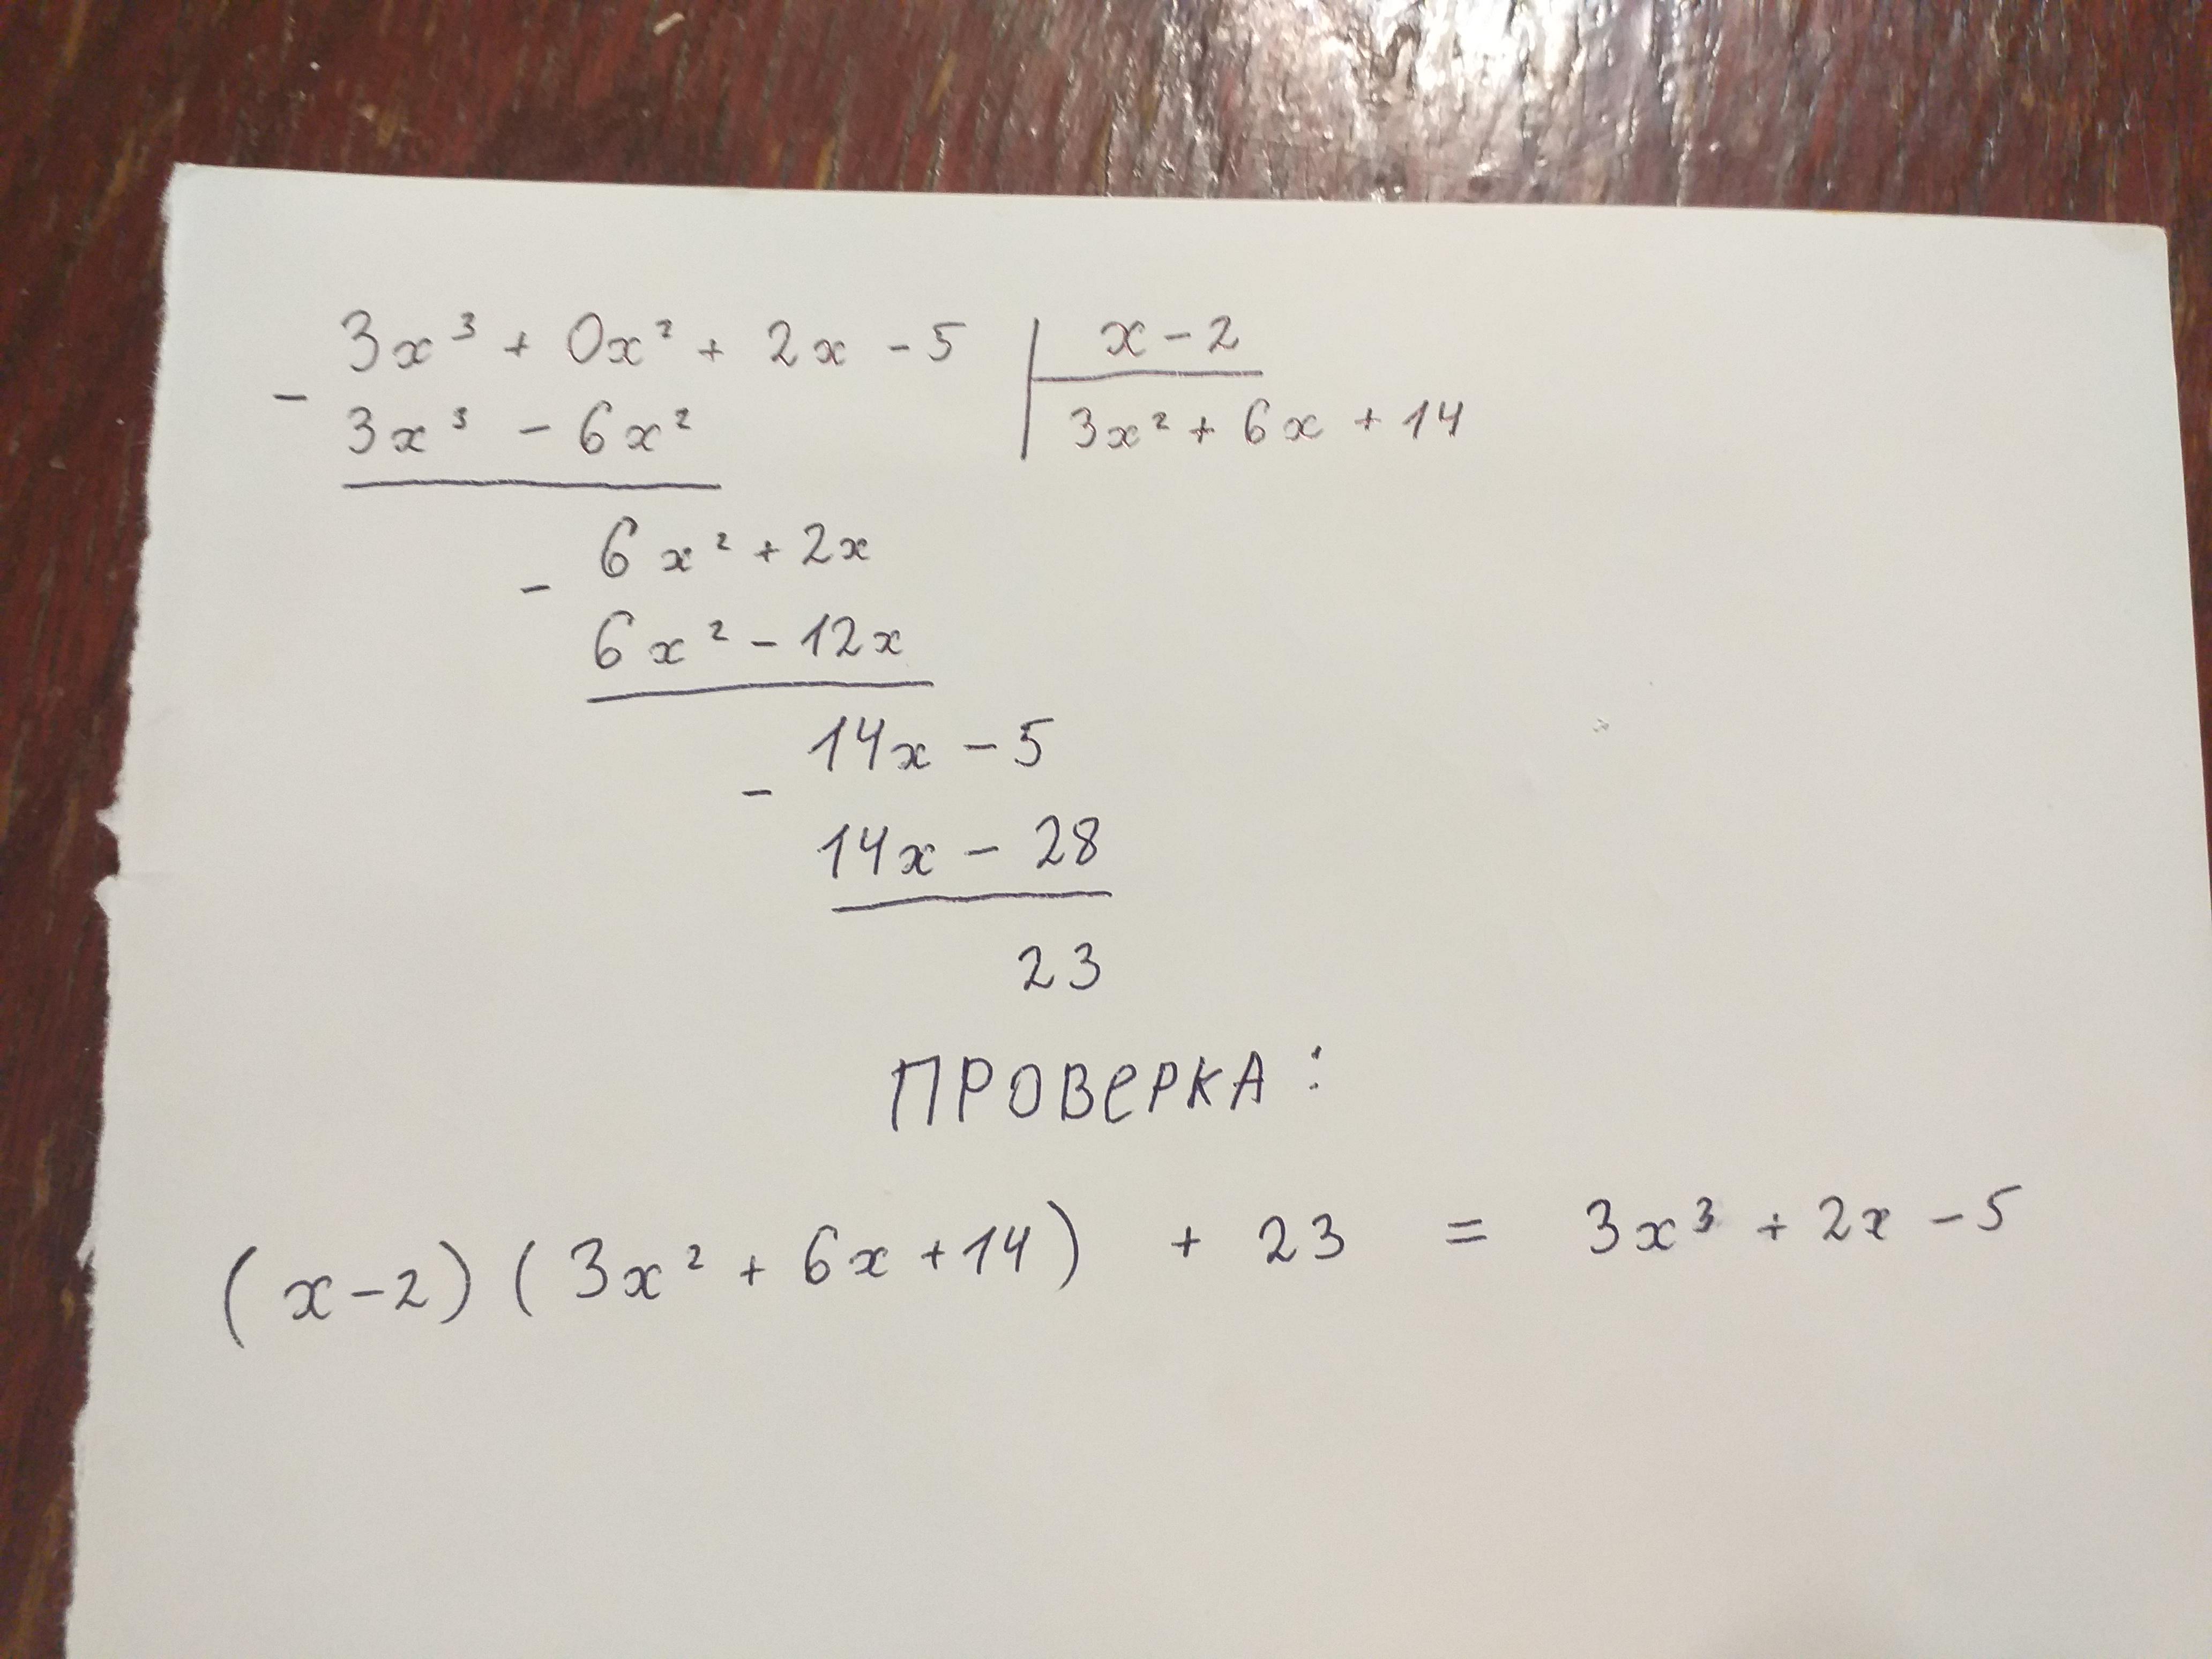 3x³ + 0x² + 2x - 5 | x - 2
- 3x³ - 6x² | 3x² + 6x + 14
6x² + 2x
- 6x² - 12x
14x - 5
- 14x - 28
23
ПРОВЕРКА:
(x-2)(3x² + 6x + 14) + 23 = 3x³ + 2x - 5